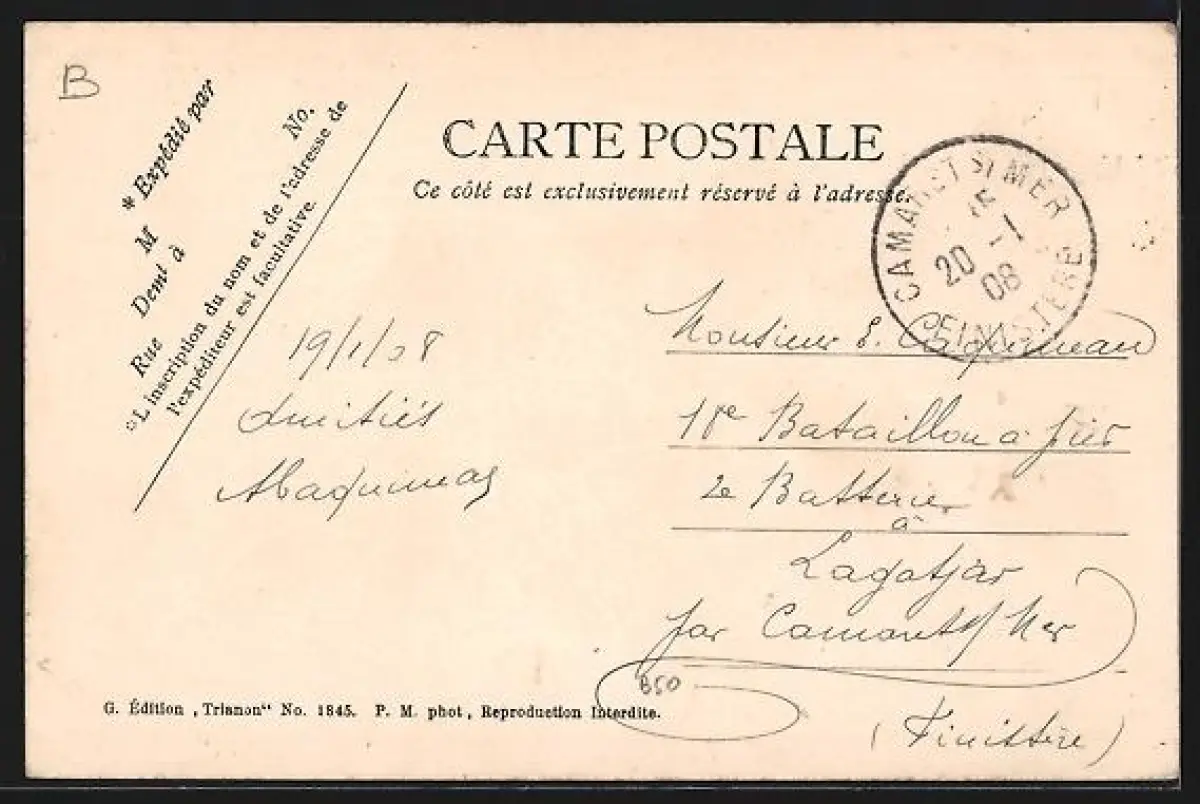 B
* Expédié par
No.
M
Demt à
Rue
L'inscription du nom et de l'adresse de
l'expéditeur est facultative.
CARTE POSTALE
Ce côté est exclusivement réservé à l'adresse.
CAMARET S/ MER
15
20 -1
08
FINISTERE
19/1/08
Amitiés
Monsieur E.
18e Bataillon à
2e Batterie
à
Lagatjar
par Camaret s/ Mer
(Finistère)
B50
G. Édition „Trianon“ No. 1845. P. M. phot, Reproduction Interdite.